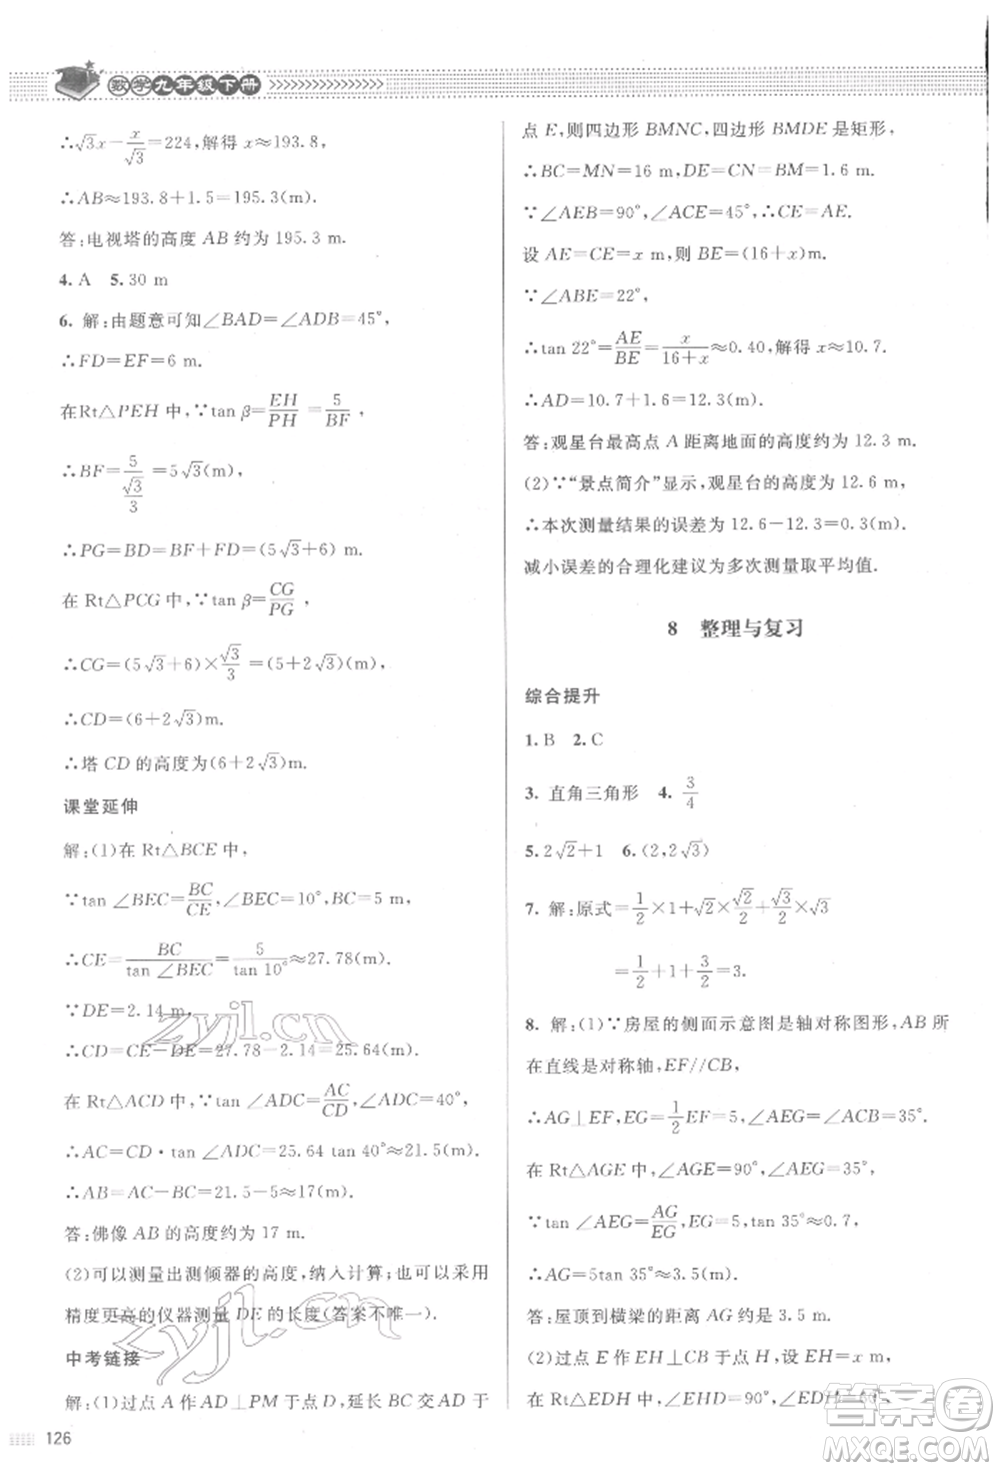 数学九年级下册
∴√3x－x/√3＝224,解得 x≈193.8,
∴AB≈193.8＋1.5＝195.3(m).
答:电视塔的高度 AB 约为 195.3 m.
4. A　5. 30 m
6. 解:由题意可知∠BAD＝∠ADB＝45°,
∴FD＝EF＝6 m.
在Rt△PEH 中,∵tan β＝EH/PH＝5/BF,
∴BF＝5/(√3/3)＝5√3(m).
∴PG＝BD＝BF＋FD＝(5√3＋6)m.
在 Rt△PCG 中,∵tan β＝CG/PG,
∴CG＝(5√3＋6)×√3/3,
∴CD＝(6＋2√3)m.
∴塔 CD 的高度为(6＋2√3)m.
课堂延伸
解:(1)在 Rt△BCE 中,
∵tan ∠BEC＝BC/CE,∠BEC＝10°,BC＝5,
∴CE＝BC/tan ∠BEC＝5/tan 10°≈27.78(m).
∵DE＝2.14 m,
∴CD＝CE－DE＝27.78－2.14＝25.64(m).
在 Rt△ACD 中,∵tan ∠ADC＝AC/CD,
∴AC＝CD·tan ∠ADC＝25.64 tan 40°≈21.5(m).
∴AB＝AC－BC＝21.5－5≈17(m).
答:佛像 AB 的高度约为 17 m.
(2)可以测量出测倾器的高度,纳入计算;也可以用
精度更高的仪器测量 DE 的长度(答案不唯一).
中考链接
解:(1)过点 A 作 AD⊥PM 于点 D,延长 BC 交 AD 于
点 E,则四边形 BMNC,四边形 BMDE 是矩形,
∴BC＝MN＝16 m,DE＝CN＝BM＝1.6 m.
∵∠AEB＝90°,∠ACE＝45°,∴CE＝AE.
设 AE＝CE＝x m,则 BE＝(16＋x)m.
∵∠ABE＝22°,
∴tan 22°＝AE/BE＝x/(16＋x)≈0.40,解得 x≈10.7.
∴AD＝10.7＋1.6＝12.3(m).
答:观星台最高点 A 距离地面的高度约为 12.3 m.
(2)∵“景点简介”显示,观星台的高度为 12.6 m,
∴本次测量结果的误差为 12.6－12.3＝0.3(m).
减小误差的合理化建议为多次测量取平均值.
8　整理与复习
综合提升
1. B　2. C
3. 直角三角形　4. 3/4
5. 2√2＋1　6. (2,2√3)
7. 解:原式＝1/2×1＋√2×√2/2＋√3/2×√3
＝1/2＋1＋3/2＝3.
8. 解:(1)∵房屋的侧面示意图是轴对称图形,AB 所
在直线是对称轴,EF//CB,
∴AG⊥EF,EG＝1/2EF＝5,∠AEG＝∠ACB＝35°.
在 Rt△AGE 中,∠AGE＝90°,∠AEG＝35°,
∵tan ∠AEG＝AG/EG,EG＝5,tan 35°≈0.7,
∴AG＝5tan 35°≈3.5(m).
答:屋顶到横梁的距离 AG 约是 3.5 m.
(2)过点 E 作 EH⊥CB 于点 H,设 EH＝x m,
在 Rt△EDH 中,∠EHD＝90°,∠EDH＝60°,
126
zyjl.cn
zyjl.cn
答案圈
MXQE.COM